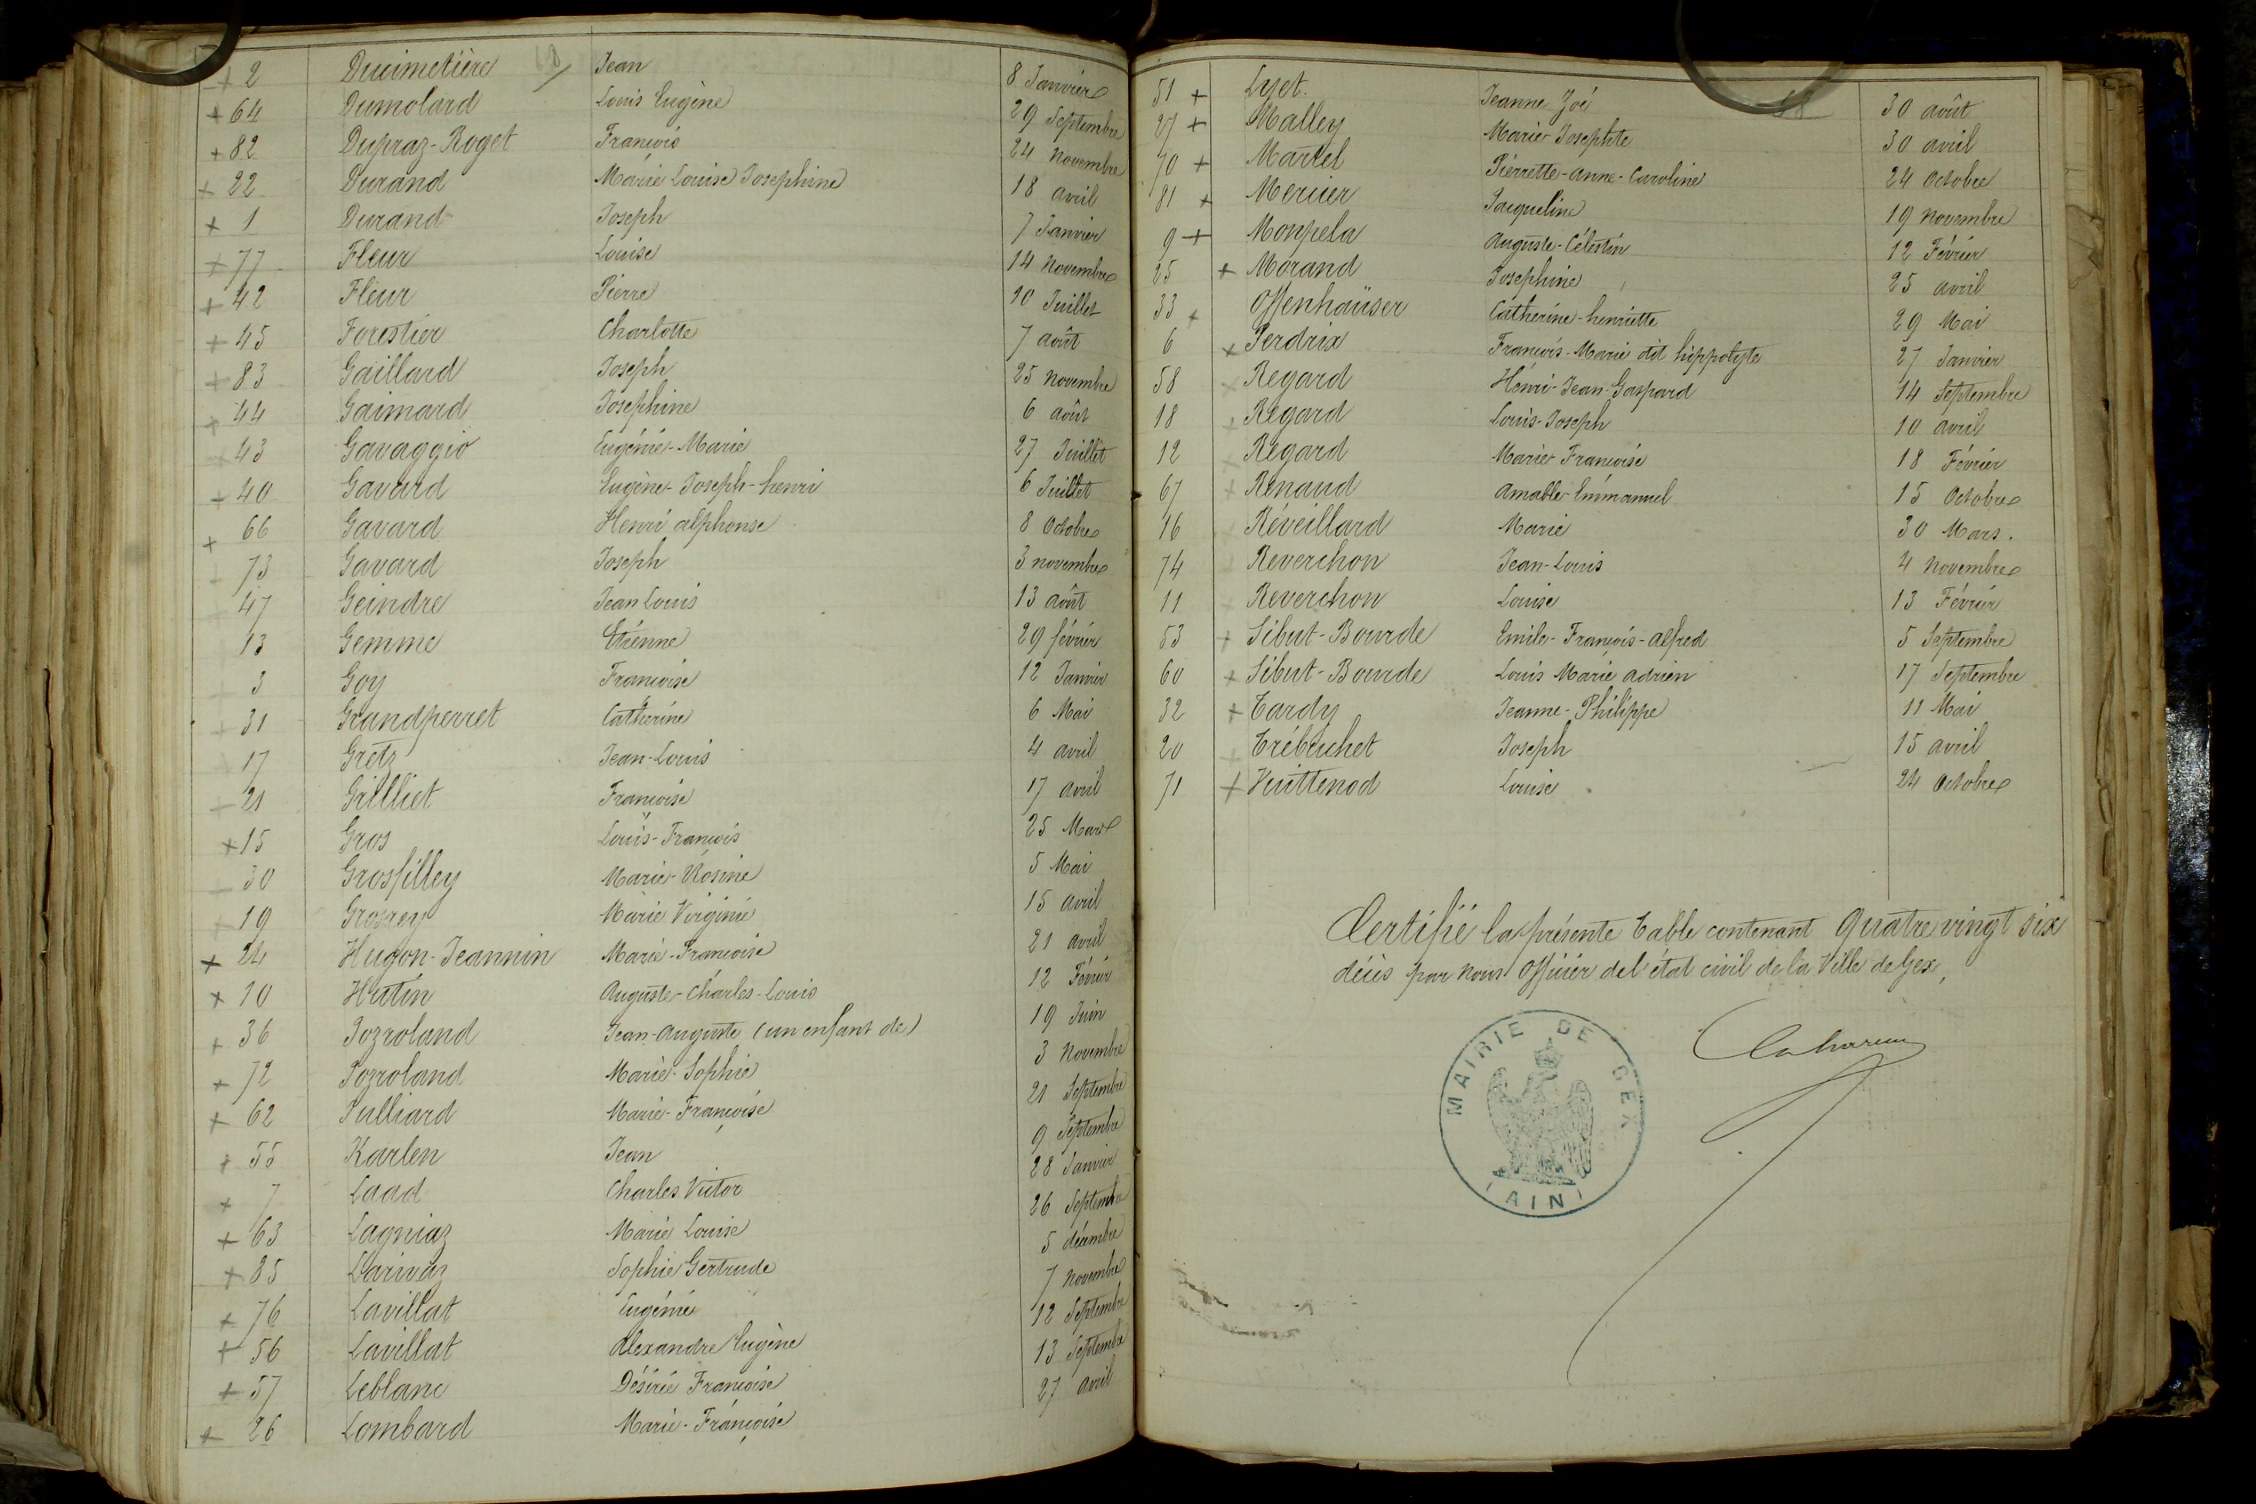 2 Ducimetière Jean 8 Janvier
64 Dumolard Louis Eugène 29 Septembre
82 Dupraz-Roget François 24 Novembre
22 Durand Marie Louise Josephine 18 avril
1 Durand Joseph 7 Janvier
77 Fleur Louise 14 Novembre
42 Fleur Pierre 10 Juillet
45 Forestier Charlotte 7 août
83 Gaillard Joseph 25 Novembre
44 Gaimard Josephine 6 août
43 Gavaggio Eugénie-Marie 27 Juillet
40 Gavard Eugène-Joseph-henri 6 Juillet
66 Gavard Henri alphonse 8 Octobre
73 Gavard Joseph 3 novembre
47 Geindre Jean Louis 13 août
13 Gemme Etienne 29 février
3 Goy Françoise 12 Janvier
31 Grandperret Catherine 6 Mai
17 Gretz Jean-Louis 4 avril
21 Grilliet Françoise 17 avril
15 Gros Louis-François 25 Mars
30 Grosfilley Marie-Rosine 5 Mai
19 Grosrey Marie Virginie 15 avril
24 Hugon-Jeannin Marie-Françoise 21 avril
10 Hutin Auguste-Charles-Louis 12 Février
36 Jozroland Jean-Auguste (un enfant de) 19 Juin
72 Jozroland Marie-Sophie 3 Novembre
62 Julliard Marie-Françoise 21 Septembre
55 Karlen Jean 9 Septembre
7 Laad Charles Victor 28 Janvier
63 Lagniaz Marie Louise 26 Septembre
85 Larivaz Sophie Gertrude 5 décembre
76 Lavillat Eugénie 7 Novembre
56 Lavillat Alexandre Eugène 12 Septembre
57 Leblanc Désirée Françoise 13 Septembre
26 Lombard Marie-Françoise 27 avril
51 Lyet. Jeanne Zoé 30 août
27 Malley Marie-Josephte 30 avril
70 Martel Pierrette-anne-Caroline 24 Octobre
81 Mercier Jacqueline 19 novembre
9 Monpela Auguste-Célestin 12 Février
25 Morand Josephine 25 avril
33 Offenhaüser Catherine-henriette 29 Mai
6 Perdrix François-Marie dit hippolyte 27 Janvier
58 Regard Henri-Jean-Gaspard 14 Septembre
18 Regard Louis-Joseph 10 avril
12 Regard Marie-Françoise 18 Février
67 Renaud Amable-Emmanuel 15 Octobre
16 Réveillard Marie 30 Mars.
74 Reverchon Jean-Louis 4 Novembre
11 Reverchon Louise 13 Février
53 Sibut-Bourde Emile-François-alfred 5 Septembre
60 Sibut-Bourde Louis Marie adrien 17 Septembre
32 Tardy Jeanne-Philippe 11 Mai
20 Trébuchet Joseph 15 avril
71 Vuittenod Louise 24 Octobre
Certifié la présente table contenant Quatre vingt six
décès par nous Officier de l'état civil de la Ville de Gex,
MAIRIE DE GEX
(AIN)